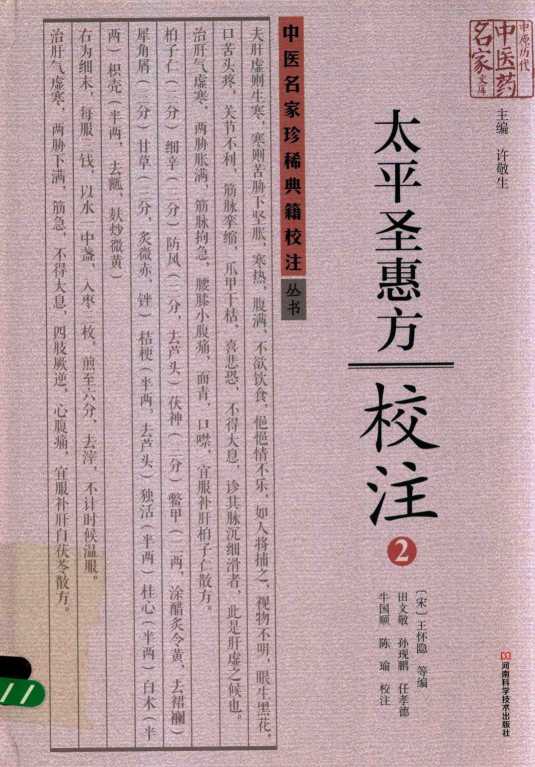 中原历代
中医药
名家文库
主编 许敬生
太平圣惠方
校注
2
〔宋〕王怀隐 等编
田文敬 孙现鹏 任孝德
牛国顺 陈瑜 校注
河南科学技术出版社
中医名家珍稀典籍校注丛书
夫肝虚则生寒，寒则苦胁下坚胀，寒热，腹满，不欲饮食，悒悒情不乐，如人将捕之，视物不明，眼生黑花，
口苦头疼，关节不利，筋脉挛缩，爪甲干枯，喜悲恐，不得太息，诊其脉沉细滑者，此是肝虚之候也。
治肝气虚寒，两胁胀满，筋脉拘急，腰膝小腹痛，面青，口噤，宜服补肝柏子仁散方。
柏子仁（三分）细辛（三分）防风（三分，去芦头）茯神（三分）鳖甲（一两，涂醋炙令黄，去裙襕）
犀角屑（三分）甘草（三分，炙微赤，锉）桔梗（半两，去芦头）独活（半两）桂心（半两）白术（半
两）枳壳（半两，去瓤，麸炒微黄）
右为细末，每服二钱，以水一中盏，入枣三枚，煎至六分，去滓，不计时候温服。
治肝气虚寒，两胁下满，筋急，不得太息，四肢厥逆，心腹痛，宜服补肝白茯苓散方。
11